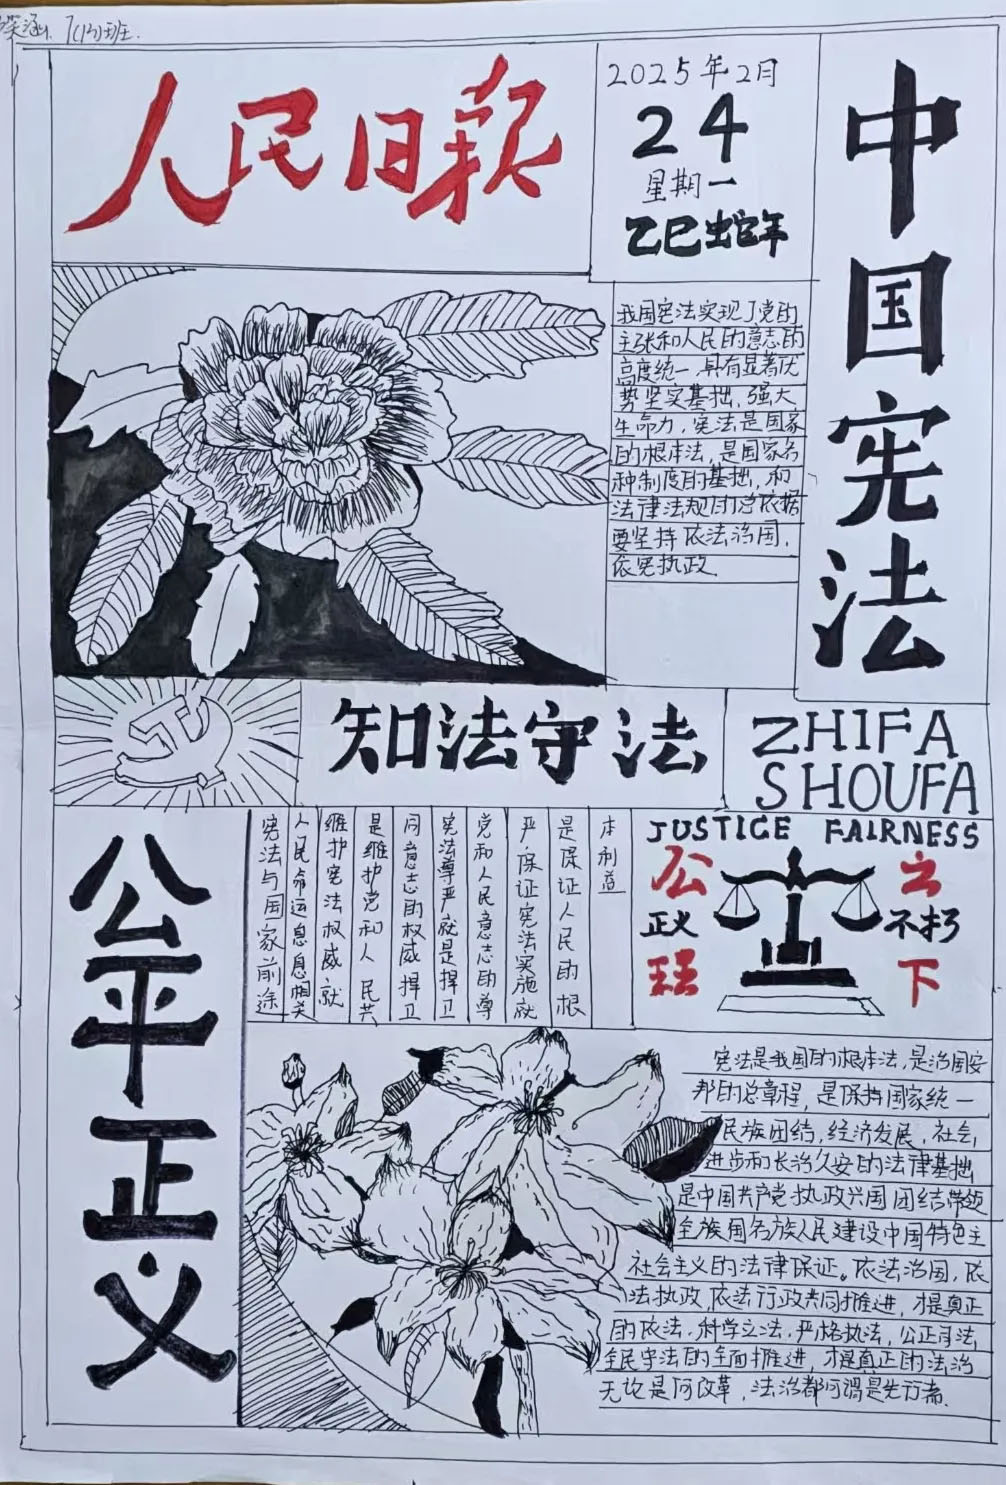 7(13)班.
人民日报
2025年2月
24
星期一
乙巳蛇年
中国宪法
我国宪法实现了党的
主张和人民的意志的
高度统一,具有显著优
势坚实基拙,强大
生命力,宪法是国家
的根本法,是国家各
种制度的基拙,和
法律法规的总依据
要坚持依法治国,
依宪执政.
知法守法
ZHIFA
SHOUFA
公平正义
宪法与国家前途
人民命运息息相关
维护宪法权威就
是维护党和人民共
同意志的权威捍卫
宪法尊严就是捍卫
党和人民意志的尊
严保证宪法实施就
是保证人民的根
本利益
JUSTICE FAIRNESS
公之
正义不朽
理下
宪法是我国的根本法,是治国安
邦的总章程,是保持国家统一
民族团结,经济发展,社会,
进步和长治久安的法律基拙
是中国共产党执政兴国团结带领
全族国各族人民建设中国特色主
社会主义的法律保证。依法治国,依
法执政,依法行政共同推进,才是真正
的依法,科学立法,严格执法,公正司法,
全民守法的全面推进,才是真正的法治
无论是何改革,法治都可谓是先行者.